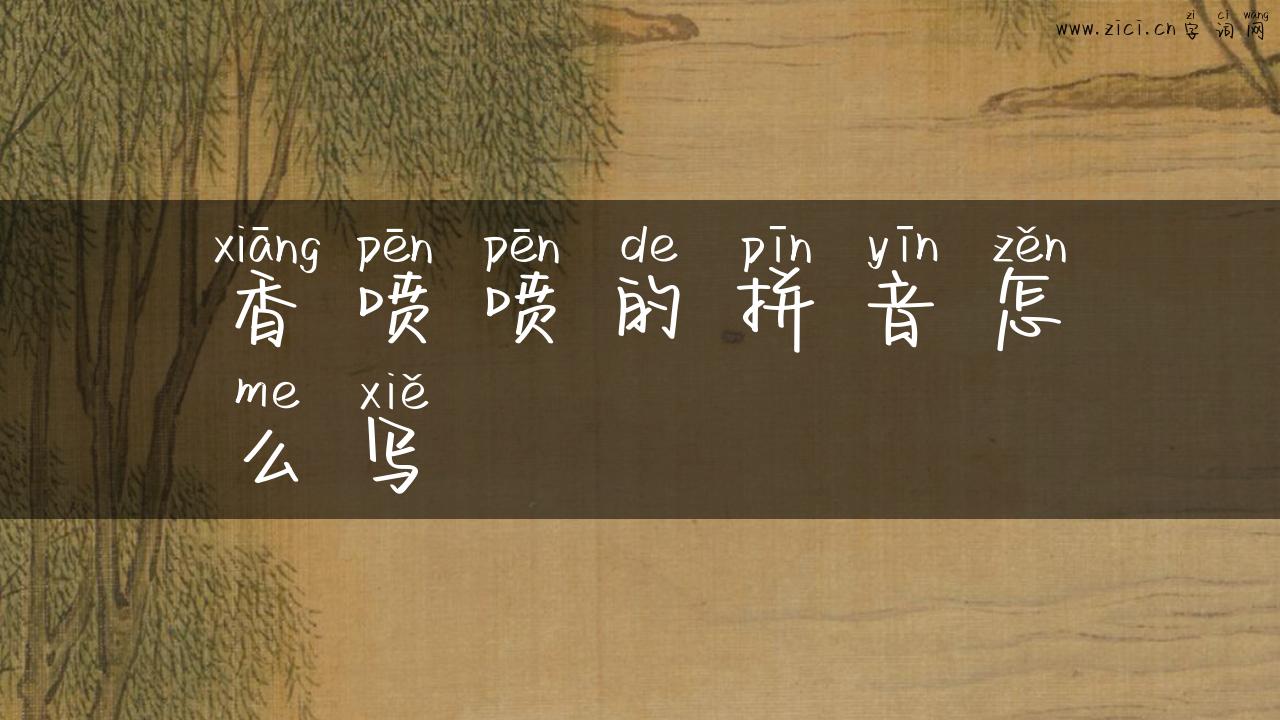 zì cí wǎng
www.zici.cn 字词网
xiāng pēn pēn de pīn yīn zěn
香喷喷的拼音怎
me xiě
么写